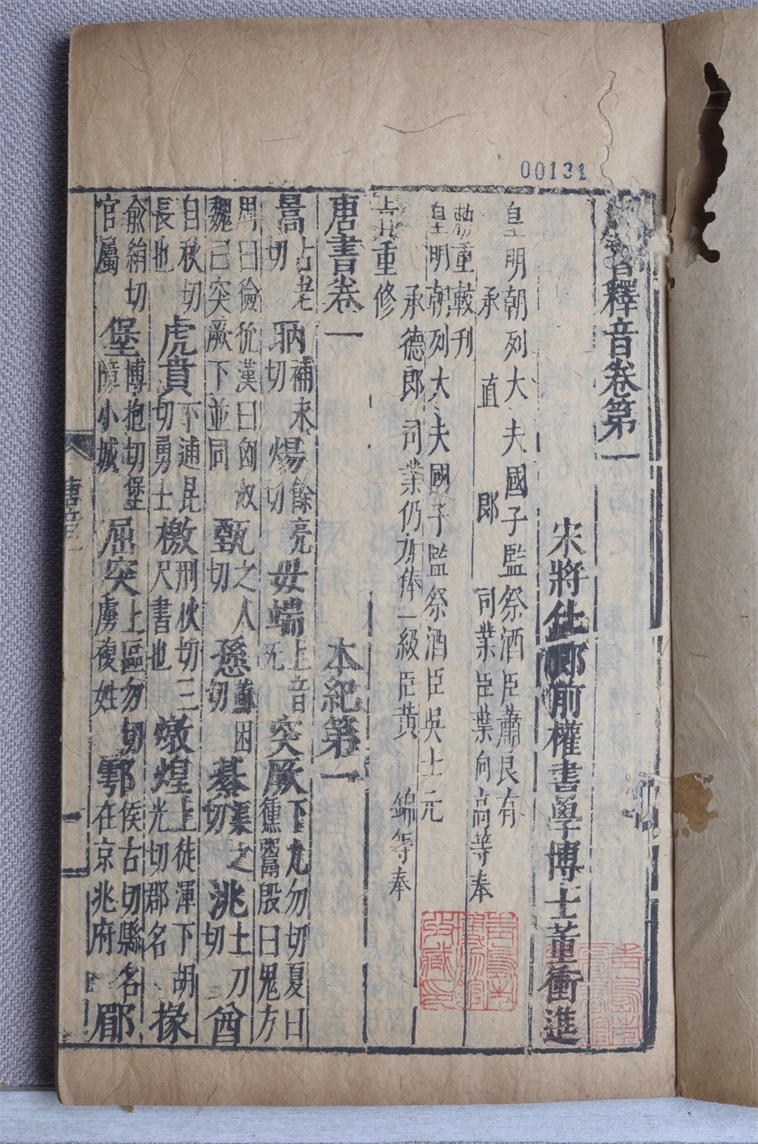 00131
釋音卷第一
宋將仕郎前權書學博士董衝進
皇明朝列大夫國子監祭酒臣蕭良有
承直郎司業臣葉向高等奉
勅重較刊
皇明朝列大夫國子監祭酒臣吳士元
承德郎司業仍加俸一級臣黃錦等奉
旨重修
唐書卷一 本紀第一
暠古老切 昞補永切 煬餘亮切 毋端上音无 突厥下九勿切夏曰獯鬻殷曰鬼方
周曰獫狁漢曰匈奴魏已突厥下並同 甄之人切 愻蘇困切 綦渠之切 洮土刀切 酋
自秋切長也 虎賁下逋昆切勇士 檄刑狄切三尺書也 燉煌上徒渾下胡光切郡名 掾
俞絹切官屬 堡博抱切堡障小城 屈突上區勿切虜複姓 鄠侯古切縣名在京兆府 郿